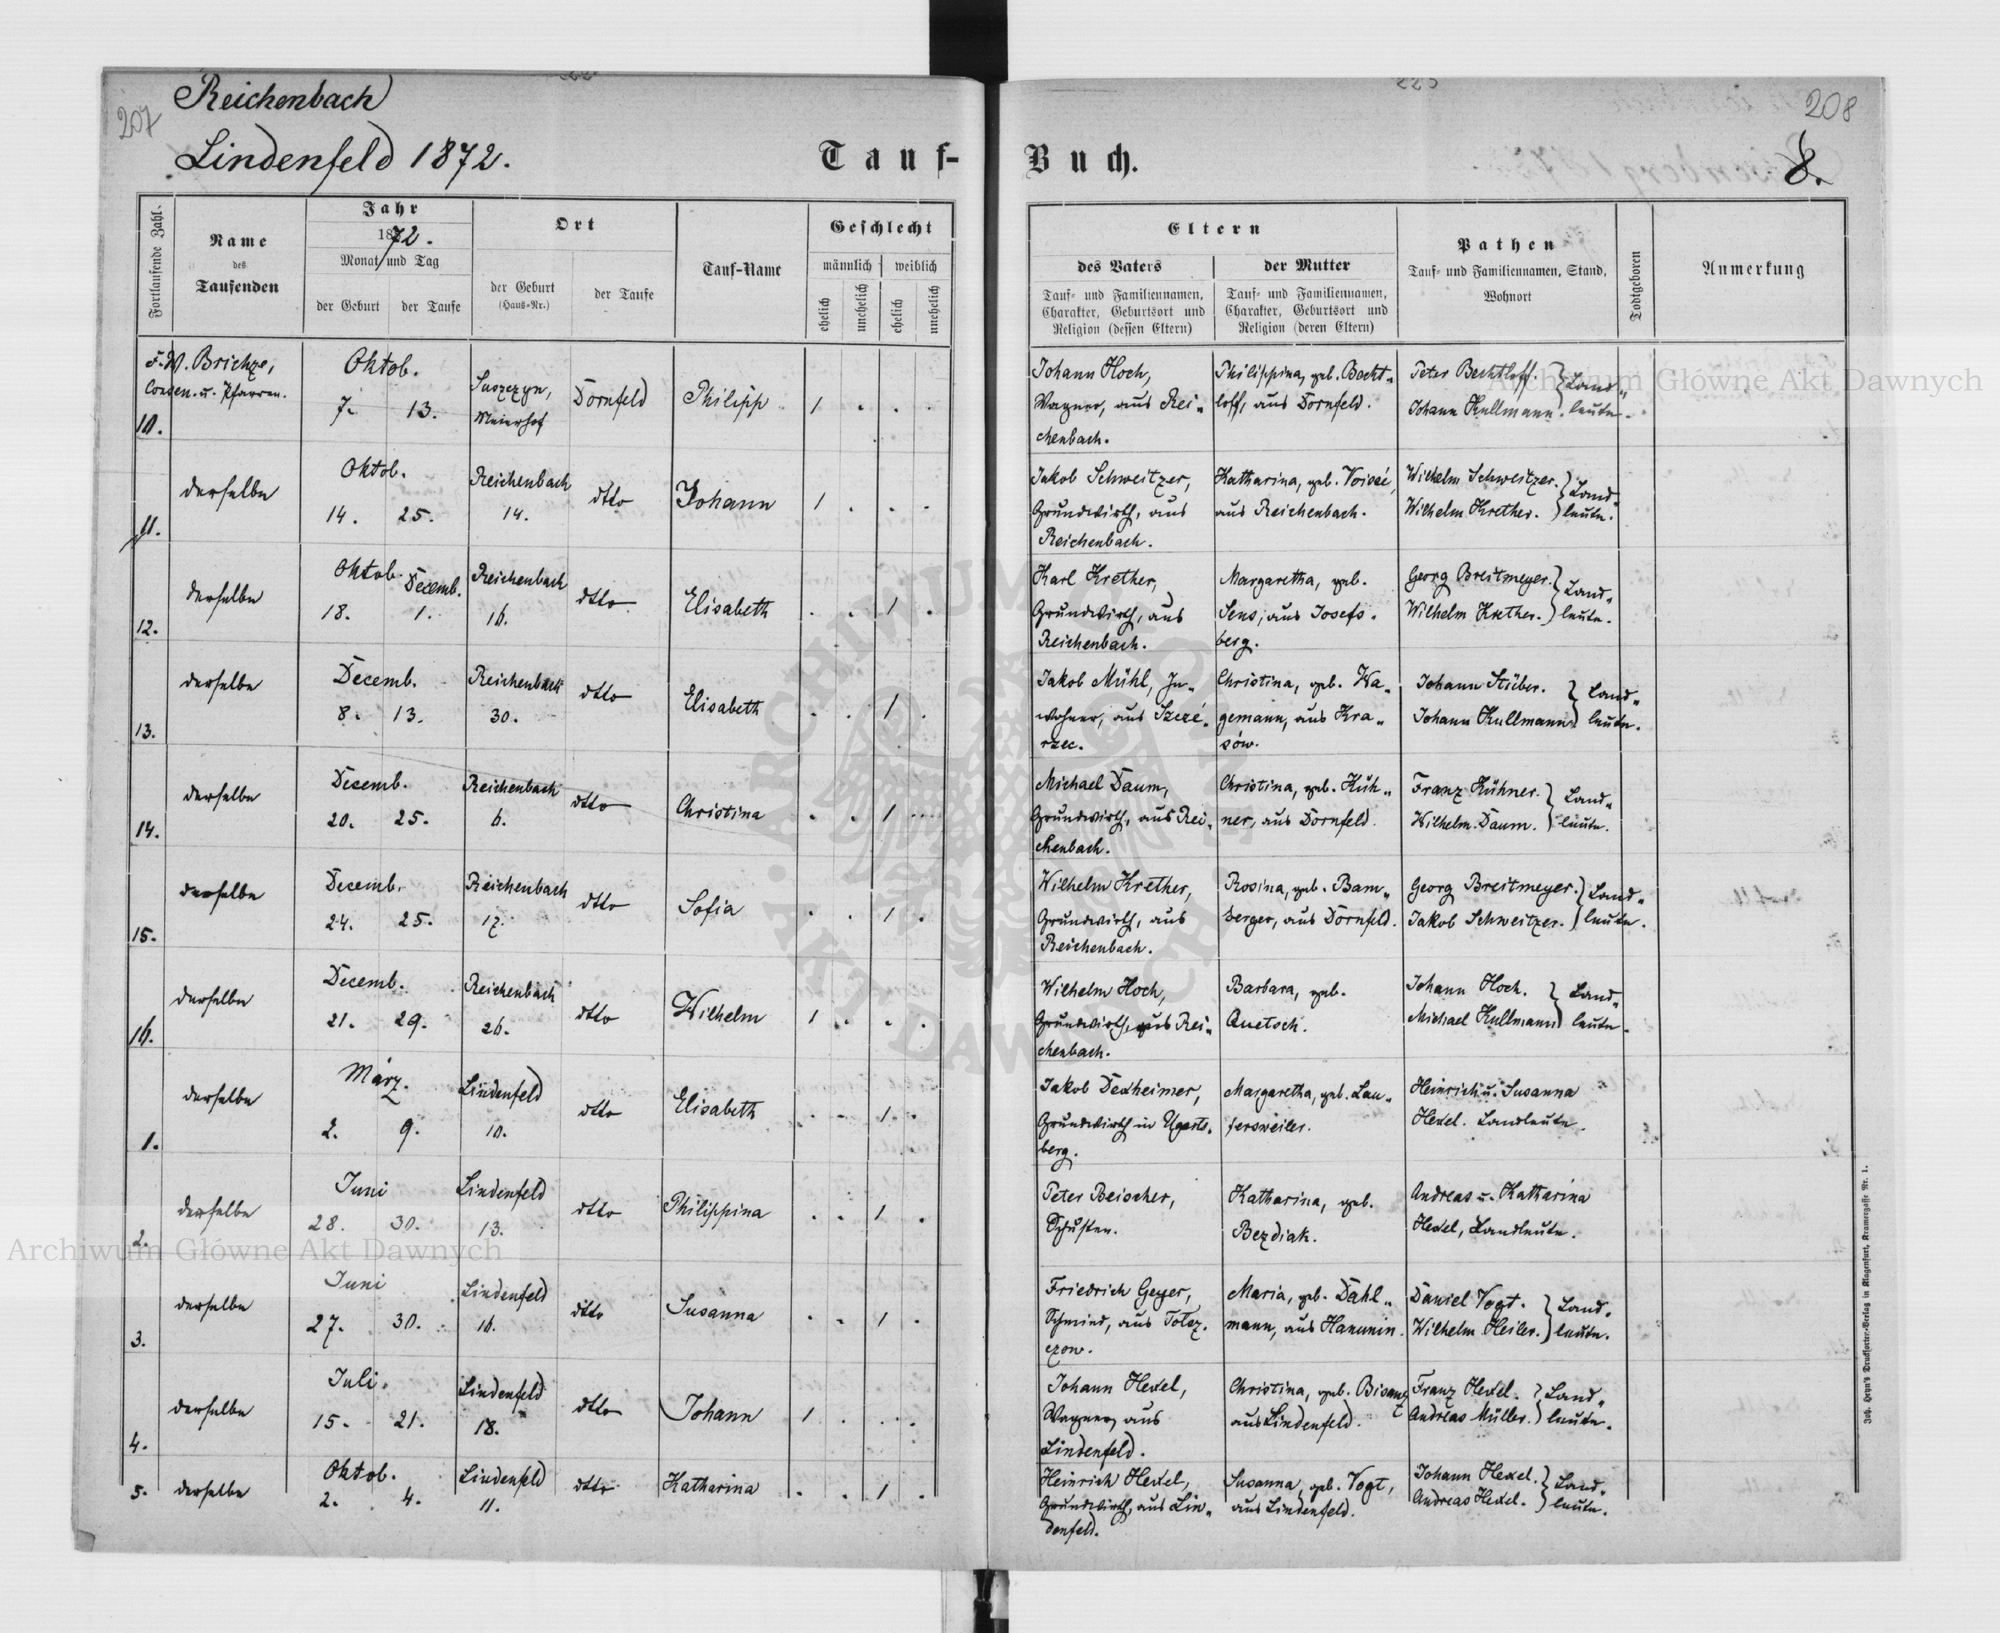 207
Reichenbach
Lindenfeld 1872.
Tauf-
Buch.
208
8.
Fortlaufende Zahl.
Name
des
Taufenden
Jahr
1872.
Monat und Tag
der Geburt
der Taufe
Ort
der Geburt
(Haus-Nr.)
der Taufe
Tauf-Name
Geschlecht
männlich
weiblich
ehelich
unehelich
ehelich
unehelich
Eltern
des Vaters
der Mutter
Tauf- und Familiennamen,
Charakter, Geburtsort und
Religion (dessen Eltern)
Tauf- und Familiennamen,
Charakter, Geburtsort und
Religion (deren Eltern)
Pathen
Tauf- und Familiennamen, Stand,
Wohnort
Todtgeboren
Anmerkung
10.
Oktob.
7. 13.
Suszczyn,
Meierhof
Dornfeld
Philipp
1 . . .
Johann Hoch,
Wagner, aus Rei-
chenbach.
Philippina, geb. Becht-
loff, aus Dornfeld.
Peter Bechtloff
Johann Kullmann.
Land-
leute.
11.
derselbe
Oktob.
14. 25.
Reichenbach
14.
dtto
Johann
1 . . .
Jakob Schweitzer,
Grundwirth, aus
Reichenbach.
Katharina, geb. Voissé,
aus Reichenbach.
Wilhelm Schweitzer.
Wilhelm Krether.
Land-
leute.
12.
derselbe
Oktob. Decemb.
18. 1.
Reichenbach
16.
dtto
Elisabeth
. . 1 .
Karl Krether,
Grundwirth, aus
Reichenbach.
Margaretha, geb.
Sens, aus Josefs-
berg.
Georg Breitmeyer.
Wilhelm Krether.
Land-
leute.
13.
derselbe
Decemb.
8. 13.
Reichenbach
30.
dtto
Elisabeth
. . 1 .
Jakob Mühl, In-
wohner, aus Szcze-
rzec.
Christina, geb. Wa-
gemann, aus Kra-
sów.
Johann Stüber.
Johann Kullmann
Land-
leute.
14.
derselbe
Decemb.
20. 25.
Reichenbach
6.
dtto
Christina
. . 1 .
Michael Daum,
Grundwirth, aus Rei-
chenbach.
Christina, geb. Küh-
ner, aus Dornfeld.
Franz Kühner.
Wilhelm Daum.
Land-
leute.
15.
derselbe
Decemb.
24. 25.
Reichenbach
17.
dtto
Sofia
. . 1 .
Wilhelm Krether,
Grundwirth, aus
Reichenbach.
Rosina, geb. Bam-
berger, aus Dornfeld.
Georg Breitmeyer.
Jakob Schweitzer.
Land-
leute.
16.
derselbe
Decemb.
21. 29.
Reichenbach
26.
dtto
Wilhelm
1 . . .
Wilhelm Hoch,
Grundwirth, aus Rei-
chenbach.
Barbara, geb.
Quetsch.
Johann Hoch.
Michael Kullmann
Land-
leute.
1.
derselbe
März.
2. 9.
Lindenfeld
10.
dtto
Elisabeth
. . 1 .
Jakob Dexheimer,
Grundwirth in Ugarts-
berg.
Margaretha, geb. Lau-
fersweiler.
Heinrich u. Susanna
Hexel. Landleute.
2.
derselbe
Juni
28. 30.
Lindenfeld
13.
dtto
Philippina
. . 1 .
Peter Beischer,
Schuster.
Katharina, geb.
Bezdiak.
Andreas u. Katharina
Hexel, Landleute.
3.
derselbe
Juni
27. 30.
Lindenfeld
16.
dtto
Susanna
. . 1 .
Friedrich Geyer,
Schmied, aus
Maria, geb. Dahl-
mann, aus Hanunin.
Daniel Vogt.
Wilhelm Heiler.
Land-
leute.
4.
derselbe
Juli.
15. 21.
Lindenfeld
18.
dtto
Johann
1 . . .
Johann Hexel,
Wagner, aus
Lindenfeld.
Christina, geb. Bisanz
aus Lindenfeld.
Franz Hexel.
Andreas Müller.
Land-
leute.
5.
derselbe
Oktob.
2. 4.
Lindenfeld
11.
dtto
Katharina
. . 1 .
Heinrich Hexel,
Grundwirth, aus Lin-
denfeld.
Susanna, geb. Vogt,
aus Lindenfeld.
Johann Hexel.
Andreas Hexel.
Land-
leute.
Joh. Heyn's Drucksorten-Verlag in Klagenfurt, Kramergasse Nr. 1.
Archiwum Główne Akt Dawnych
Archiwum Główne Akt Dawnych
ARCHIWUM
AKT DAWNYCH